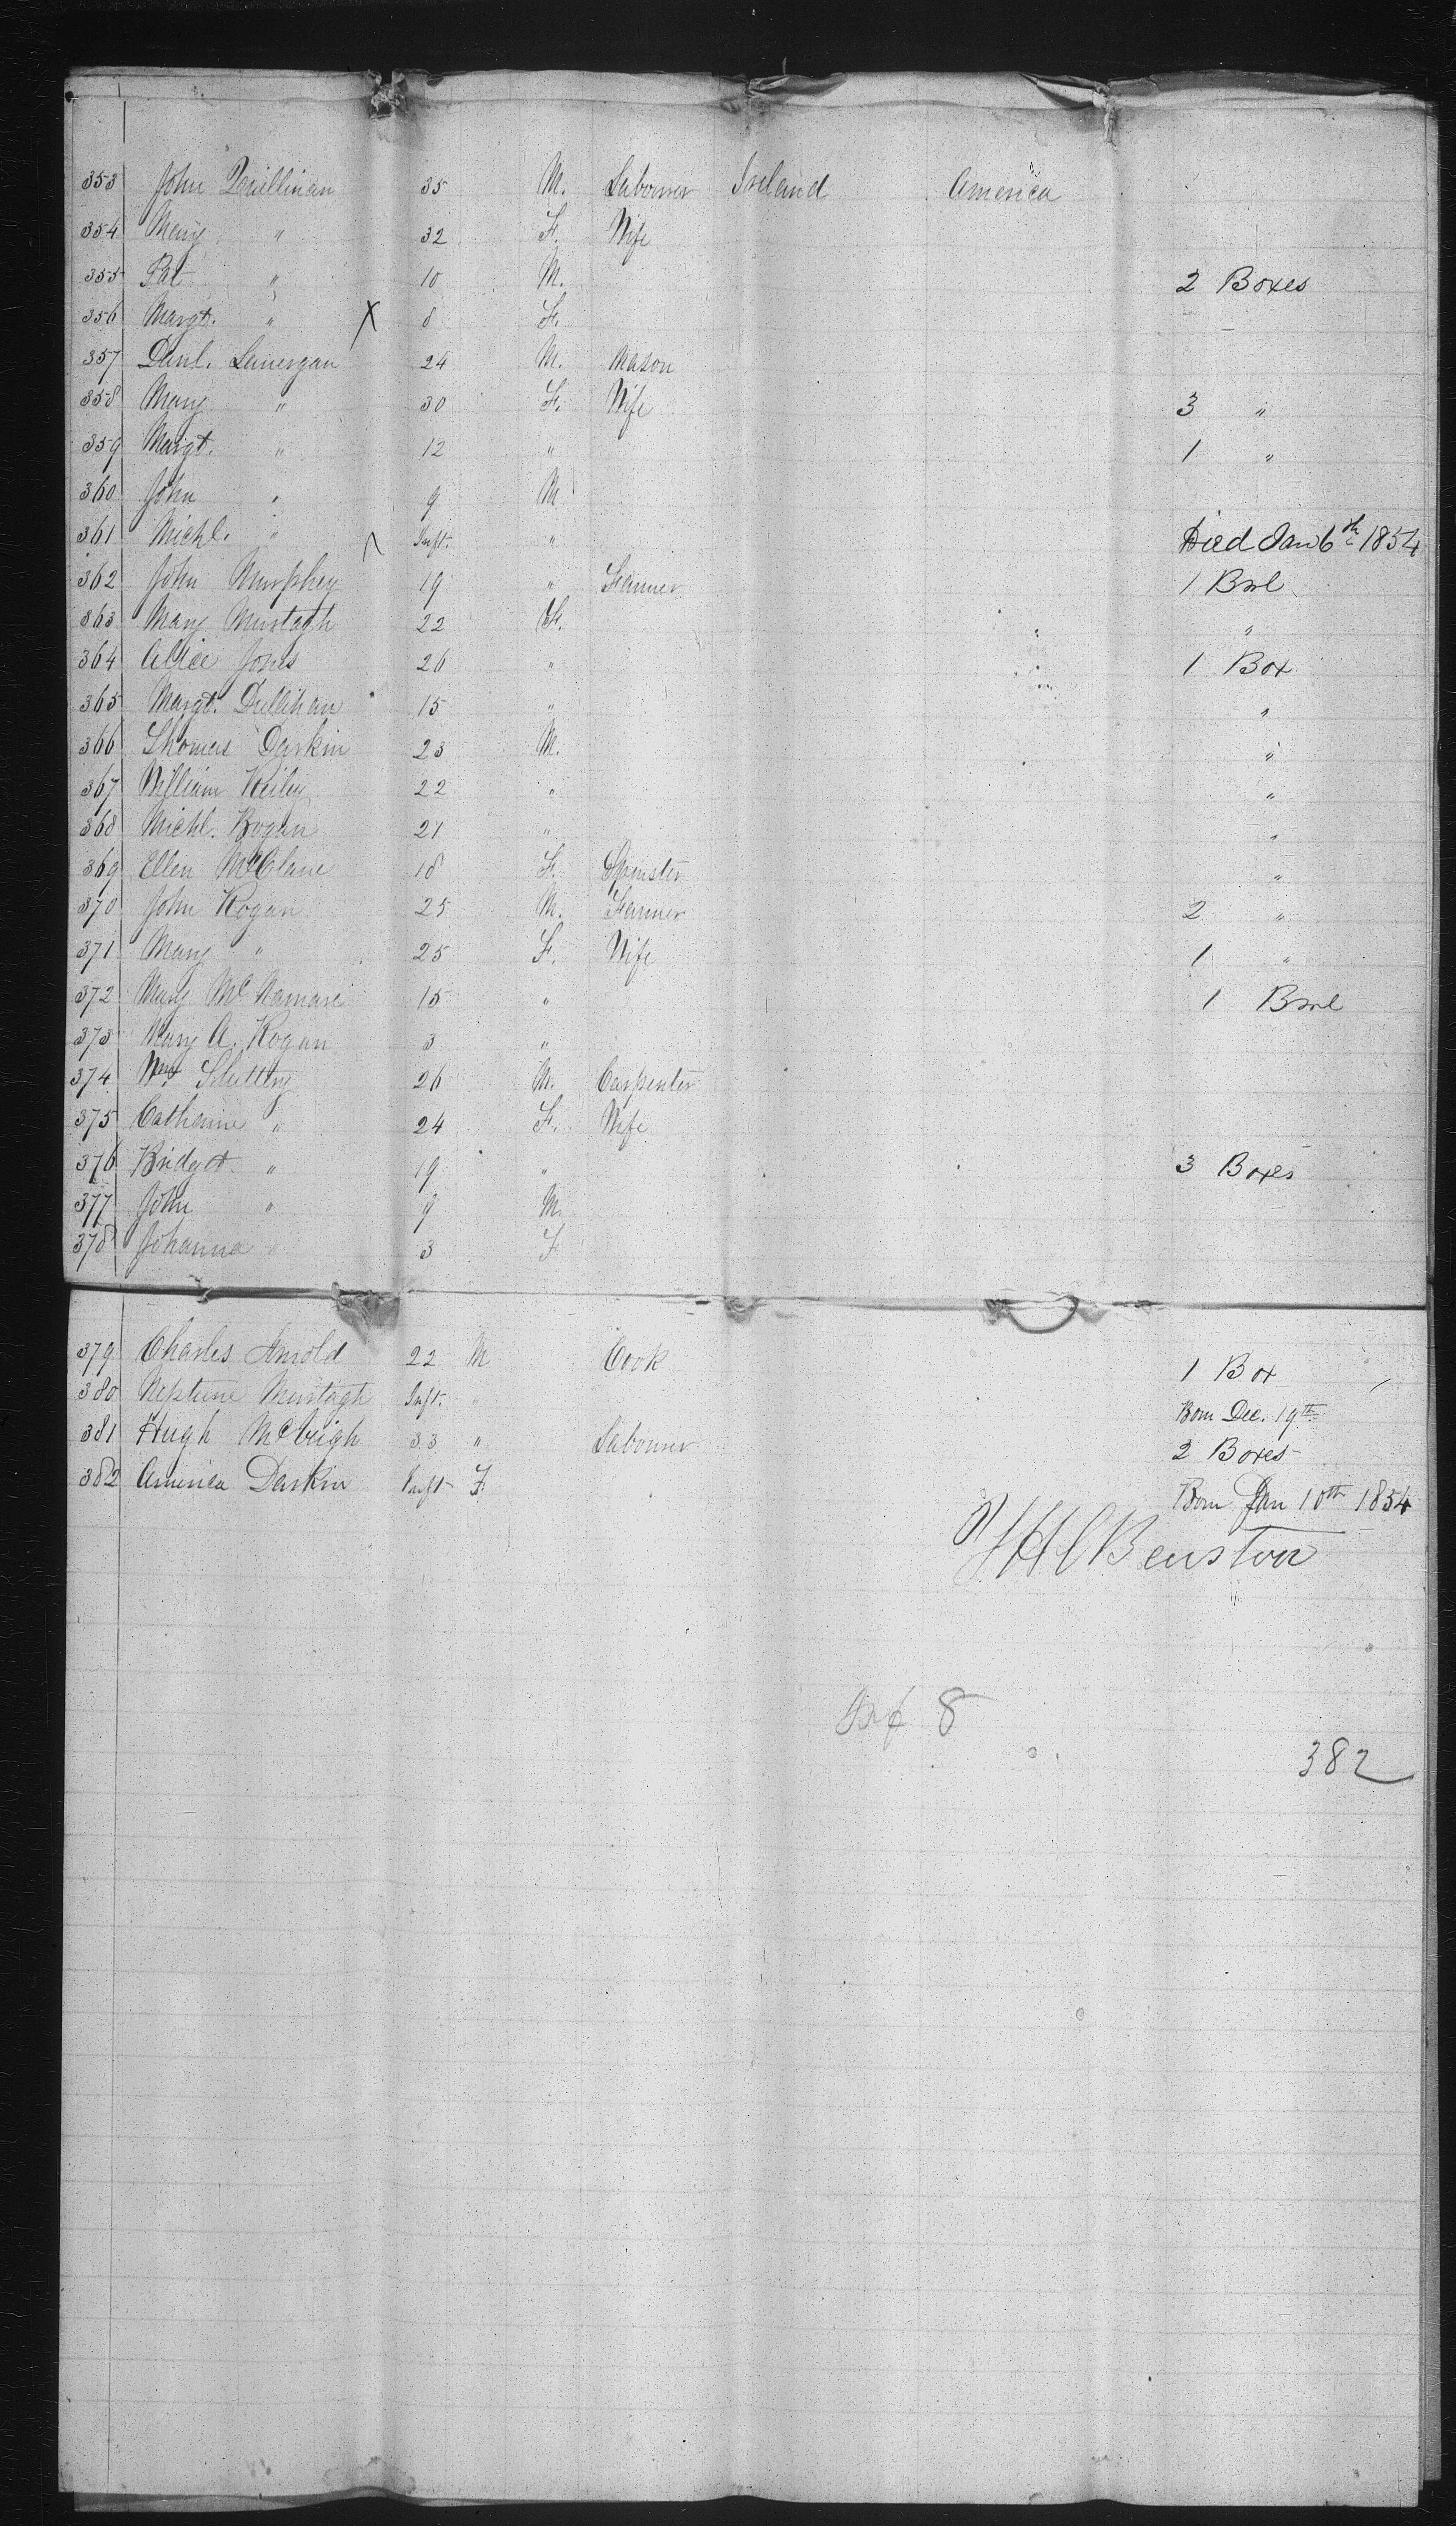 353 John Quillinan 35 M. Labourer Ireland America
354 Mary " 32 F. Wife
355 Pat " 10 M. 2 Boxes
356 Margt. " X 8 F.
357 Danl. Lanergan 24 M. Mason
358 Mary " 30 F. Wife 3 "
359 Margt. " 12 " 1 "
360 John " 9 M
361 Michl. " Inft. " Died Jan 6th 1854
362 John Murphey 19 " Farmer 1 Brl
363 Mary Murtagh 22 F. "
364 Alice Jones 26 " 1 Box
365 Margt. 15 " "
366 Thomas Darkin 23 M. "
367 William Reiley 22 " "
368 Michl. Hogan 21 " "
369 Ellen McClane 18 F. Spinster "
370 John Hogan 25 M. Farmer 2 "
371 Mary " 25 F. Wife 1 "
372 Mary McNamara 15 " 1 Brl
373 Mary A. Hogan 3 "
374 Wm Slattery 26 M. Carpenter
375 Catharine " 24 F. Wife
376 Bridget " 19 " 3 Boxes
377 John " 9 M.
378 Johanna " 3 F
379 Charles Arnold 22 M Cook 1 Box
380 Neptune Murtagh Inft. " Born Dec. 19th
381 Hugh McVeigh 33 " Labourer 2 Boxes
382 America Darkin Inft F. Born Jan 10th 1854
Inf 8
382